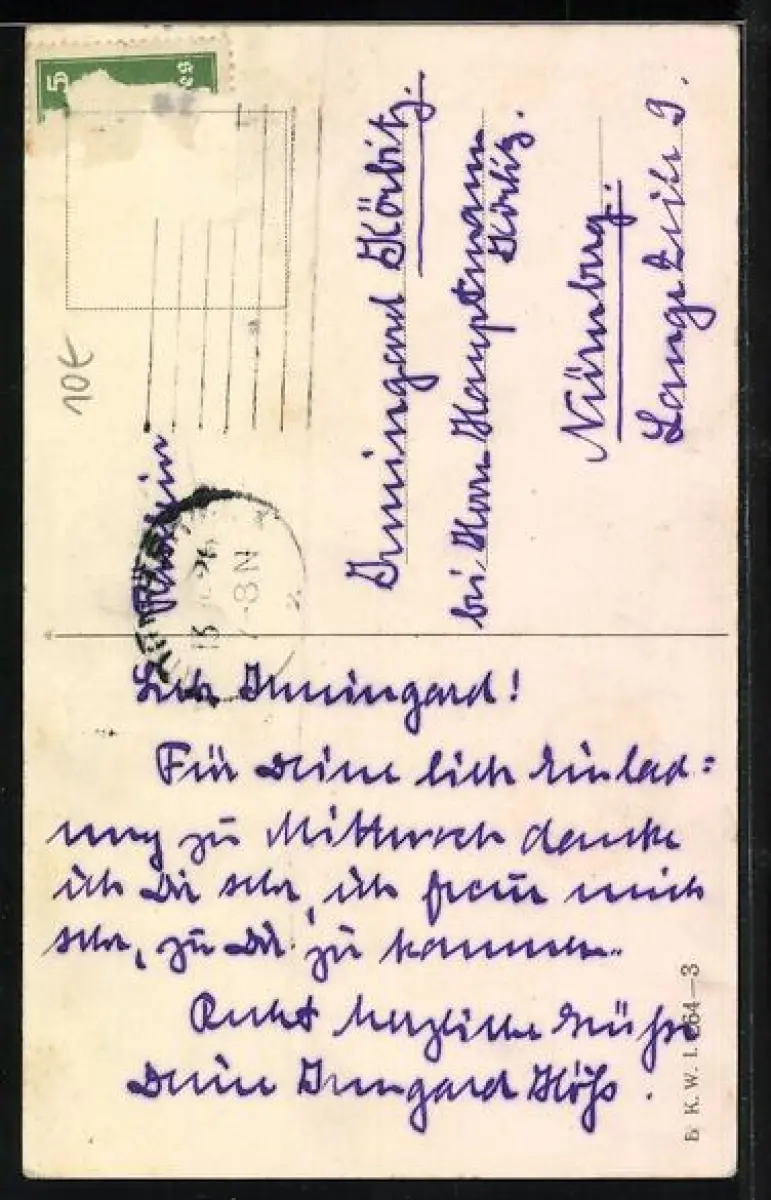 5
10€
13
26
7-8N
2
Irmingard Körbitz.
bei Herrn Hauptmann
Körbitz.
Nürnberg.
Lange Zeile 9.
Liebe Irmingard!
Für Deine liebe Einlad=
ung zu Mittwoch danke
ich Dir sehr, ich freue mich
sehr, zu Dir zu kommen.
Recht herzliche Grüße
Deine Irmgard Höß.
B K. W. I. 264—3